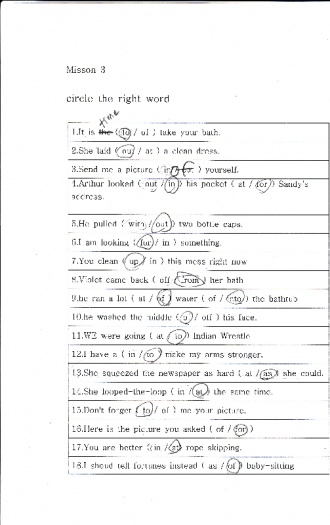 Misson 3
circle the right word
time
1.It is the ( to / of ) take your bath.
2.She laid ( out / at ) a clean dress.
3.Send me a picture ( in / of ) yourself.
4.Arthur looked ( out / in ) his pocket ( at / for ) Sandy's
address.
5.He pulled ( with / out ) two bottle caps.
6.I am looking ( for / in ) something.
7.You clean ( up / in ) this mess right now
8.Violet came back ( off / from ) her bath
9.he ran a lot ( at / of ) water ( of / into ) the bathtub
10.he washed the middle ( of / off ) his face.
11.WE were going ( at / to ) Indian Wrestle
12.I have a ( in / to ) make my arms stronger.
13.She squeezed the newspaper as hard ( at / as ) she could.
14.She looped-the-loop ( in / at ) the same time.
15.Don't forget ( to / of ) me your picture.
16.Here is the picture you asked ( of / for )
17.You are better ( in / at ) rope skipping.
18.I shoud tell fortunes instead ( as / of ) baby-sitting